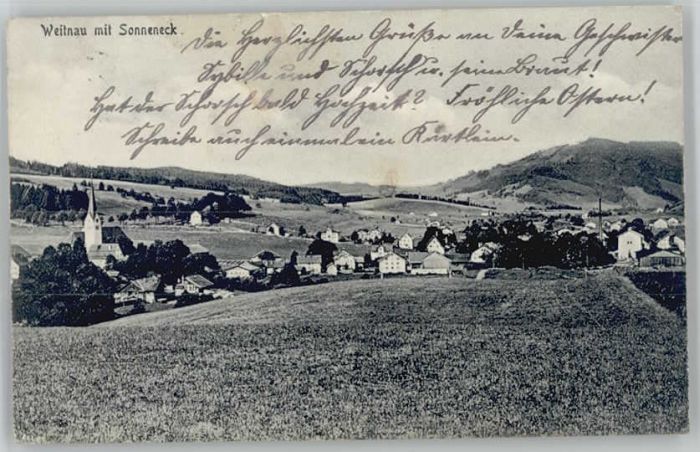 Weitnau mit Sonneneck
Die Herzlichsten Grüße an Deine Geschwister
Sybille und Schorsch u. seine Braut!
Hat der Schorsch bald Hochzeit? Fröhliche Ostern!
Schreibe auch einmal ein Kärtlein.